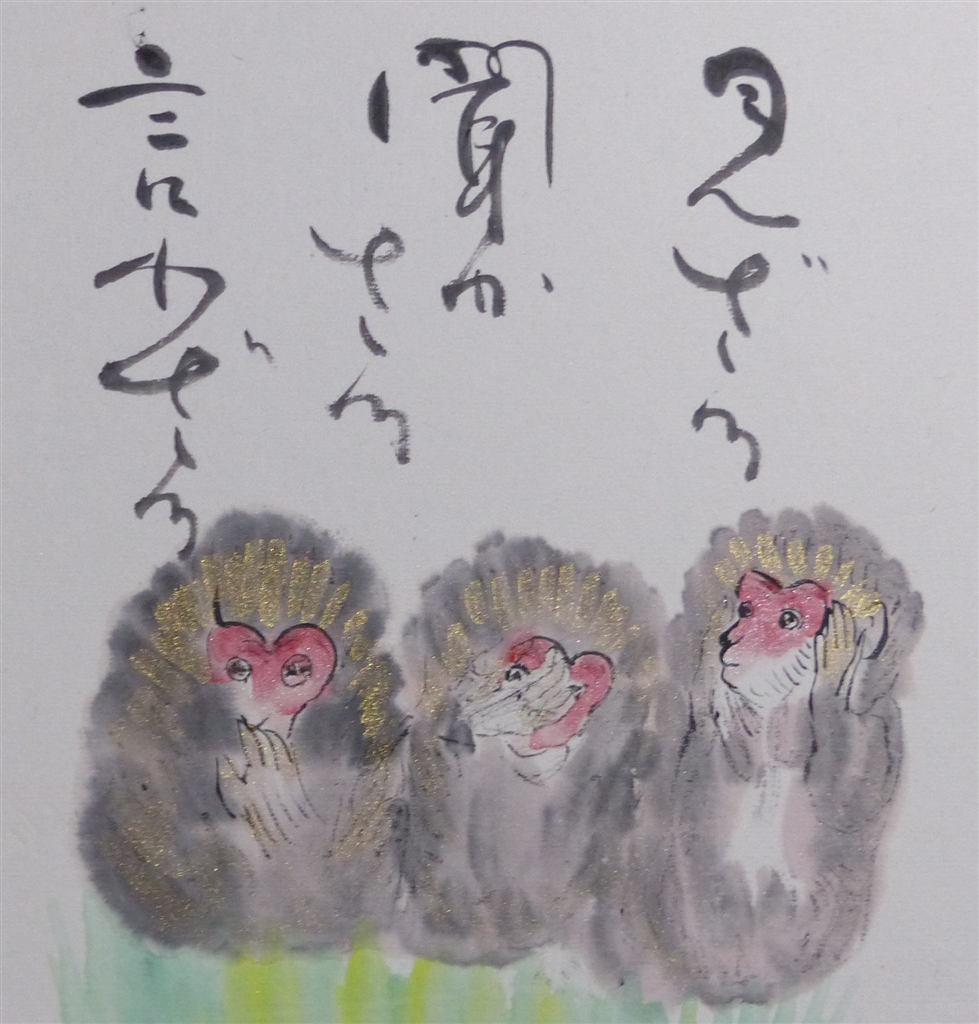 見ざる
聞か
さる
言わざる